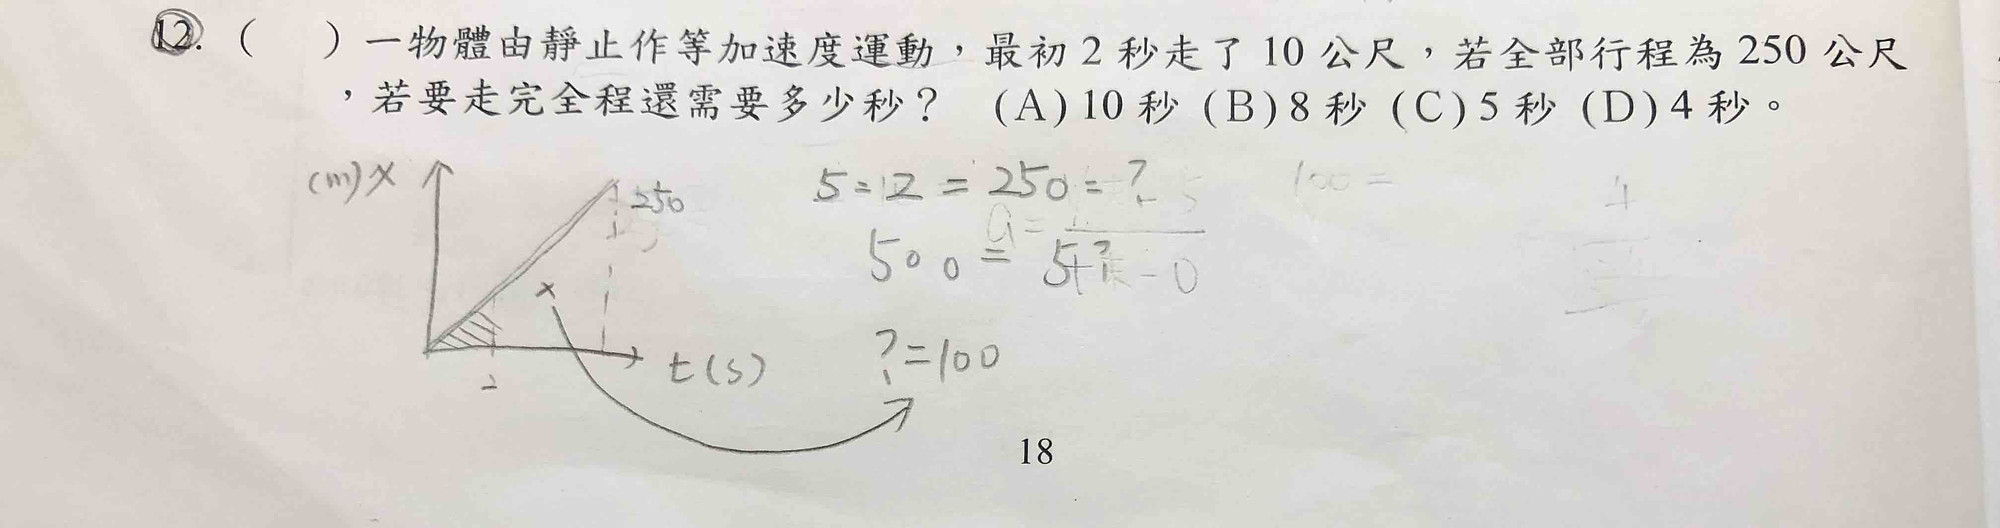 12. (　　) 一物體由靜止作等加速度運動，最初 2 秒走了 10 公尺，若全部行程為 250 公尺
，若要走完全程還需要多少秒？ (A) 10 秒 (B) 8 秒 (C) 5 秒 (D) 4 秒。
(m) x
250
2
t(s)
x
5=12=250=?
500=5+?-0
?=100
a=
100=
4
18